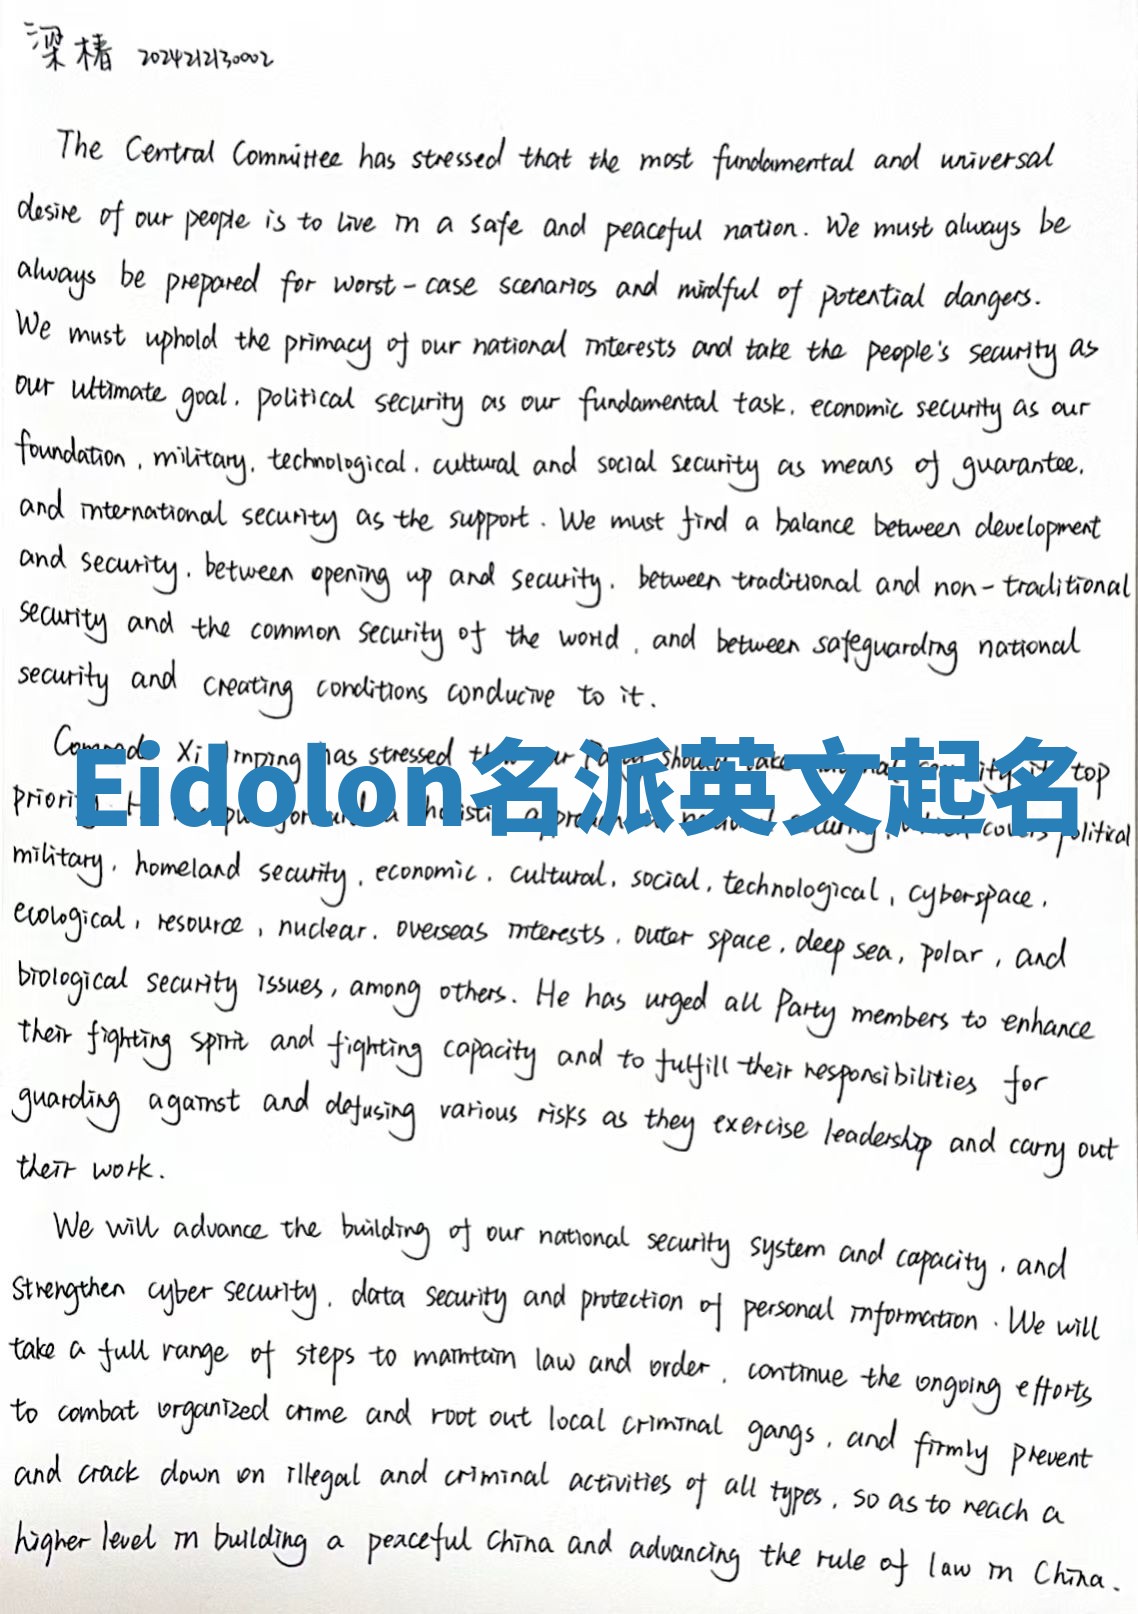 梁椿 2024212130002
The Central Committee has stressed that the most fundamental and universal
desire of our people is to live in a safe and peaceful nation. We must always be
always be prepared for worst-case scenarios and mindful of potential dangers.
We must uphold the primacy of our national interests and take the people's security as
our ultimate goal, political security as our fundamental task, economic security as our
foundation, military, technological, cultural and social security as means of guarantee,
and international security as the support. We must find a balance between development
and security, between opening up and security, between traditional and non-traditional
security and the common security of the world, and between safeguarding national
security and creating conditions conducive to it.
Xi Jinping has stressed Party should take top
Eidolon名派英文起名
covers political
military, homeland security, economic, cultural, social, technological, cyberspace,
ecological, resource, nuclear, overseas interests, outer space, deep sea, polar, and
biological security issues, among others. He has urged all Party members to enhance
their fighting spirit and fighting capacity and to fulfill their responsibilities for
guarding against and defusing various risks as they exercise leadership and carry out
their work.
We will advance the building of our national security system and capacity, and
strengthen cyber security, data security and protection of personal information. We will
take a full range of steps to maintain law and order, continue the ongoing efforts
to combat organized crime and root out local criminal gangs, and firmly prevent
and crack down on illegal and criminal activities of all types, so as to reach a
higher level in building a peaceful China and advancing the rule of law in China.